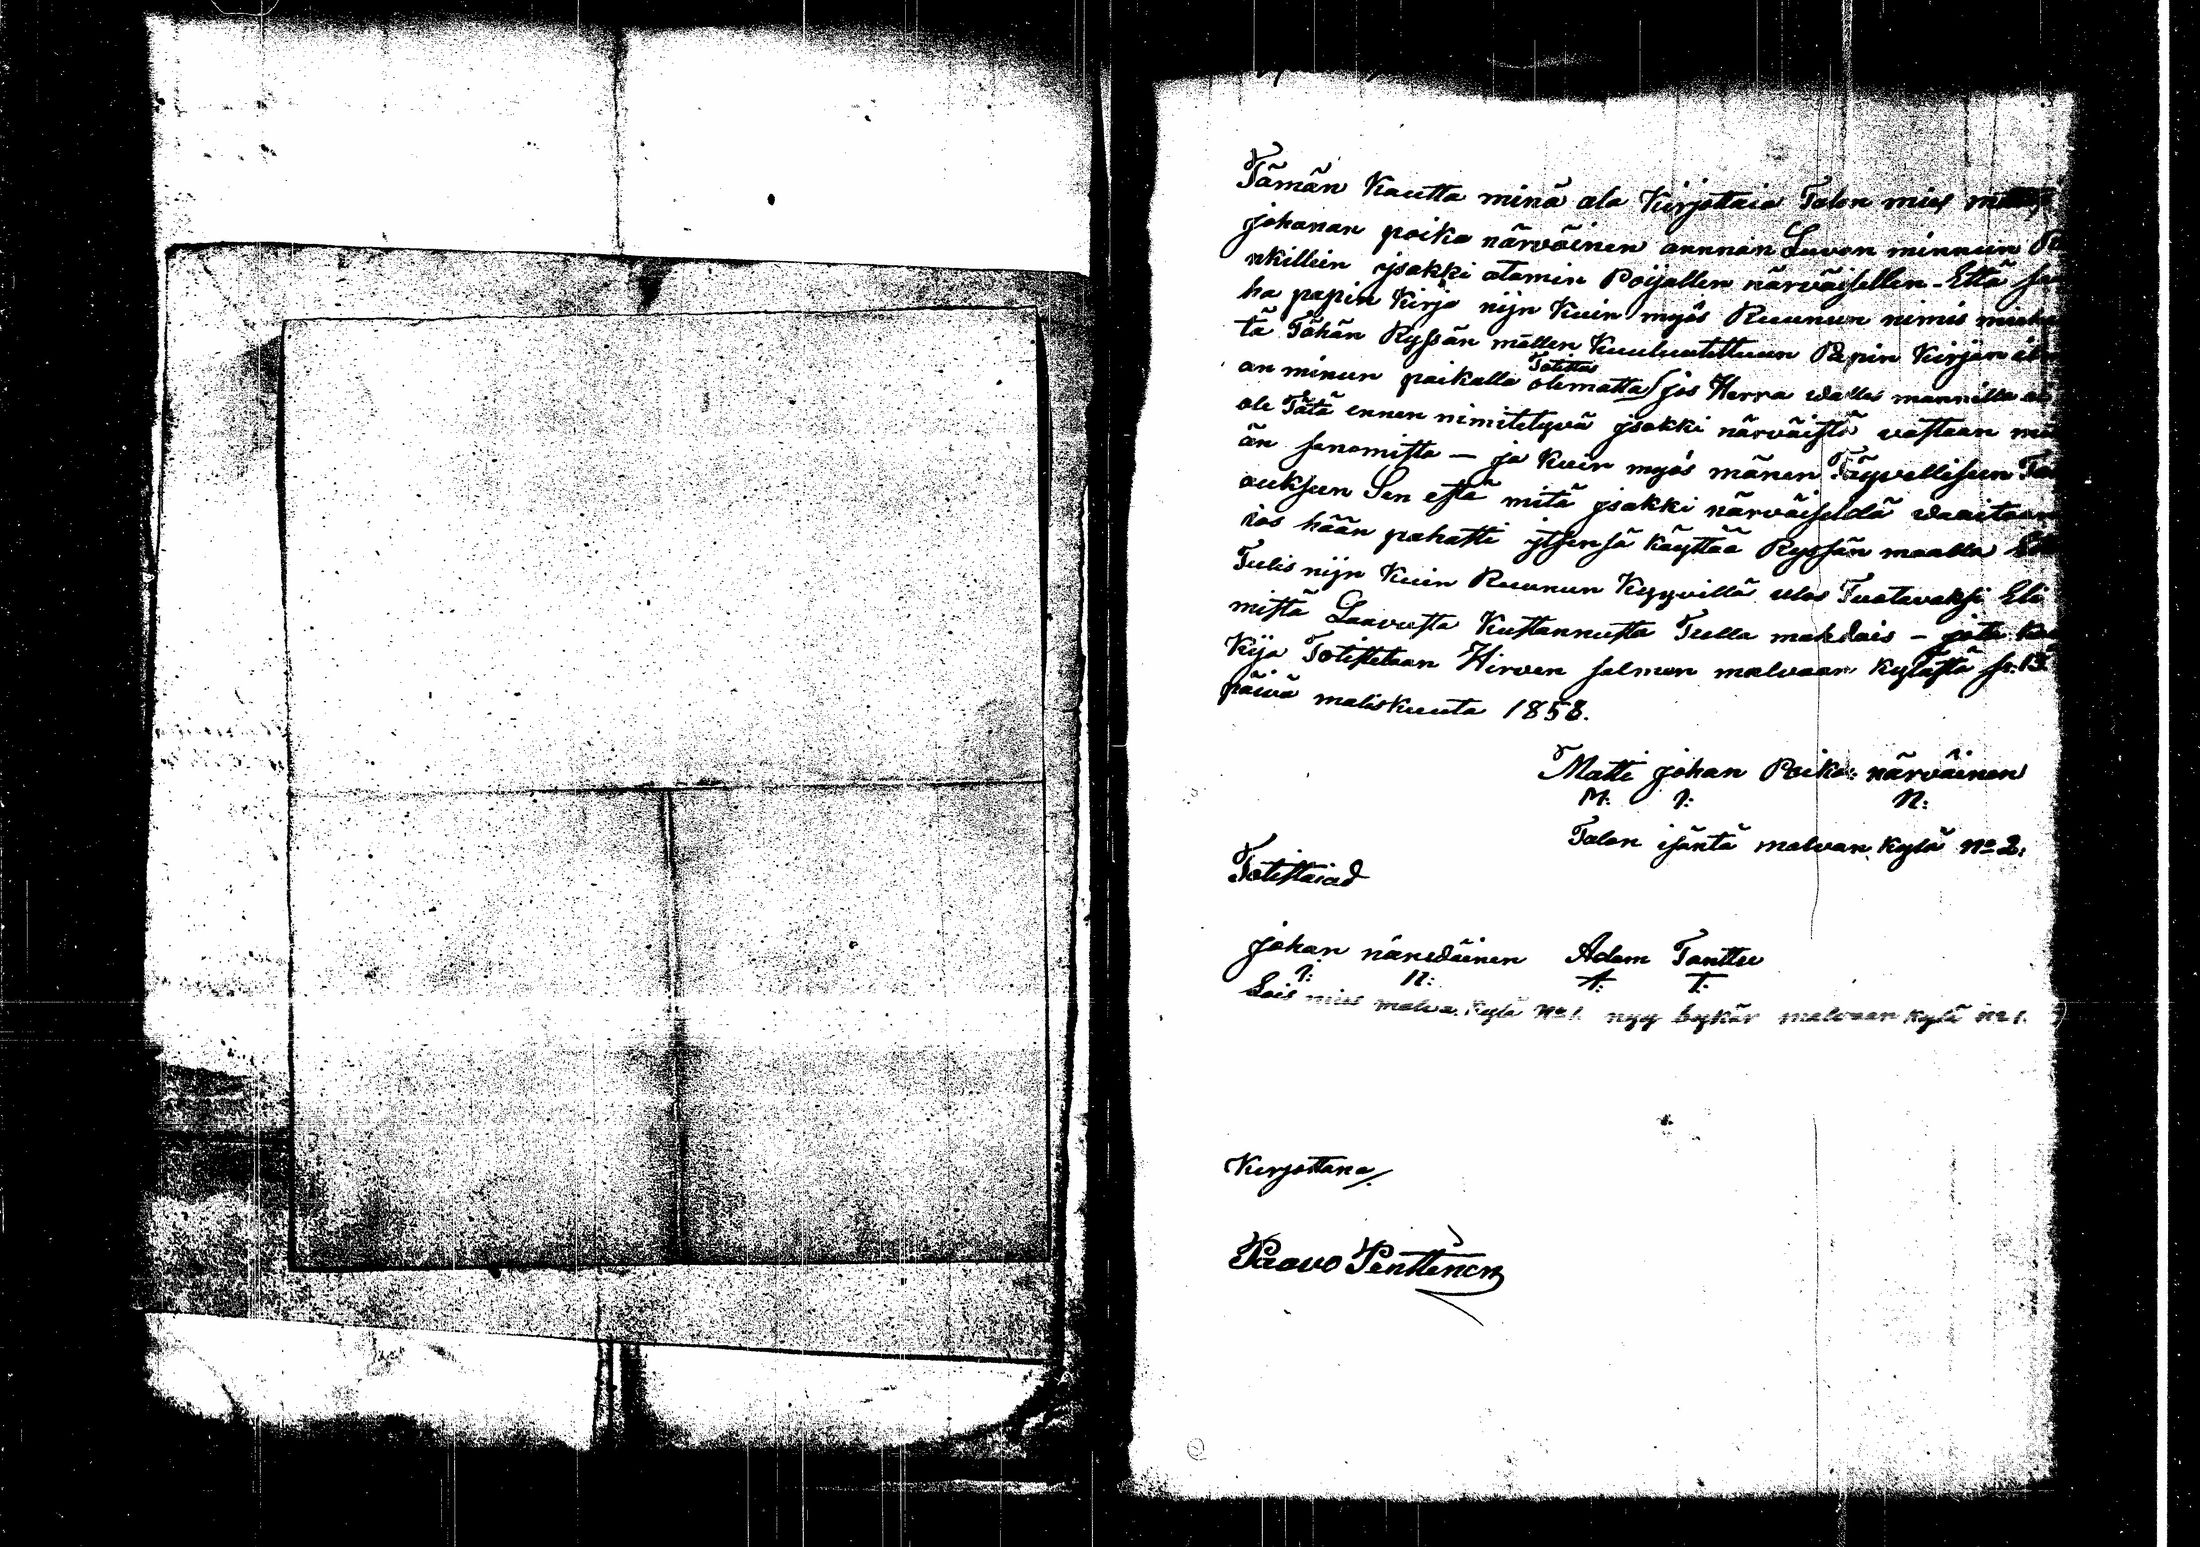 Tämän Kautta minä ala Kirjottaia Talon mies
johanan poika närväinen annnan Luvan minnun
nkillein jsakki atamin Poijallen närväisellen - Että
ha papin Kirja nijn Kuin myös Ruunun nimis
tä Tähän Ryssän mällen Kuulutettuun Papin Kirjan
an minun paikalla Totittus olematta (jos Herra walla mannilla
ole Tätä ennen nimitetyvä jsakki närväistä vastaan
än sanomista - ja Kuin myös mänen Täyvelliseen
aukseen Sen estä mitä jsakki närväiseldä waaitaan
ios hään pahasti jtsensä käyttää Ryssän maalla
Tulis nijn Kuin Ruunun Kyyvillä ulos Tuotavaksi Eli
mistä Laavusta Kustannusta Tulla mahdais - jota
Kija Totistetaan Hirven salmen malvaan Kylästä
päivä maliskuuta 1858.
Matti johan Poika närväinen
M: J: N:
Talon isäntä malvan Kylä No 2.
Totistaiad
johan närwäinen Adam Tanttu
J: N: A: T:
Lois mies malva. Kylä No 1. nyy bykär malvaan kylä No 1.
Kirjottana
Paavo Penttinen